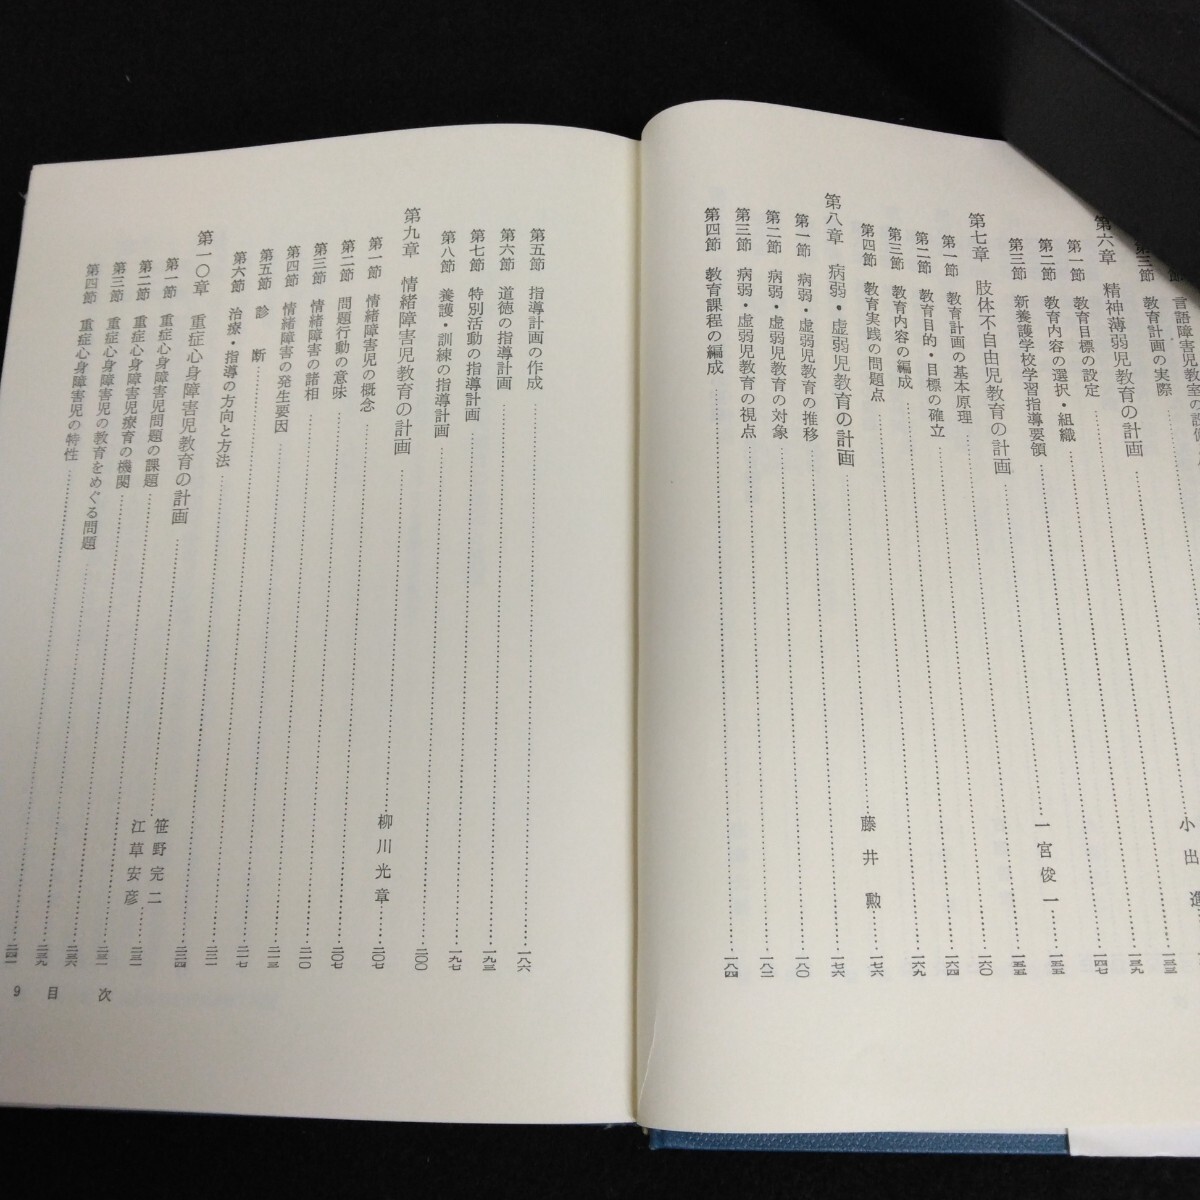 言語障害児教室の設備
第三節 教育計画の実際
第六章 精神薄弱児教育の計画 小出進
第一節 教育目標の設定 一三三
第二節 教育内容の選択・組織 一三九
第三節 新養護学校学習指導要領 一四七
第七章 肢体不自由児教育の計画 一宮俊一 一五五
第一節 教育計画の基本原理 一五五
第二節 教育目的・目標の確立 一六〇
第三節 教育内容の編成 一六四
第四節 教育実践の問題点 一六九
第八章 病弱・虚弱児教育の計画 藤井勲 一七六
第一節 病弱・虚弱児教育の推移 一七六
第二節 病弱・虚弱児教育の対象 一八〇
第三節 病弱・虚弱児教育の視点 一八二
第四節 教育課程の編成 一八四
第五節 指導計画の作成 一八六
第六節 道徳の指導計画 一九三
第七節 特別活動の指導計画 一九七
第八節 養護・訓練の指導計画 二〇〇
第九章 情緒障害児教育の計画 柳川光章 二〇七
第一節 情緒障害児の概念 二〇七
第二節 問題行動の意味 二一〇
第三節 情緒障害の諸相 二一三
第四節 情緒障害の発生要因 二一七
第五節 診断 二二一
第六節 治療・指導の方向と方法 二二四
第一〇章 重症心身障害児教育の計画 笹野完二 江草安彦 二三一
第一節 重症心身障害児問題の課題 二三一
第二節 重症心身障害児療育の機関 二三六
第三節 重症心身障害児の教育をめぐる問題 二三九
第四節 重症心身障害児の特性 二四一
9 目次